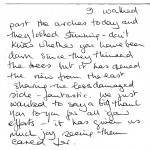 I walked
past the arches today and
they looked stunning - don't
know whether you have been
down since they thinned
the trees but it has opened
the view from the east
sharing the less damaged
side - fantastic. We just
wanted to say a big thank
you to you for all your
efforts - it has given us
much joy seeing them
cared for.